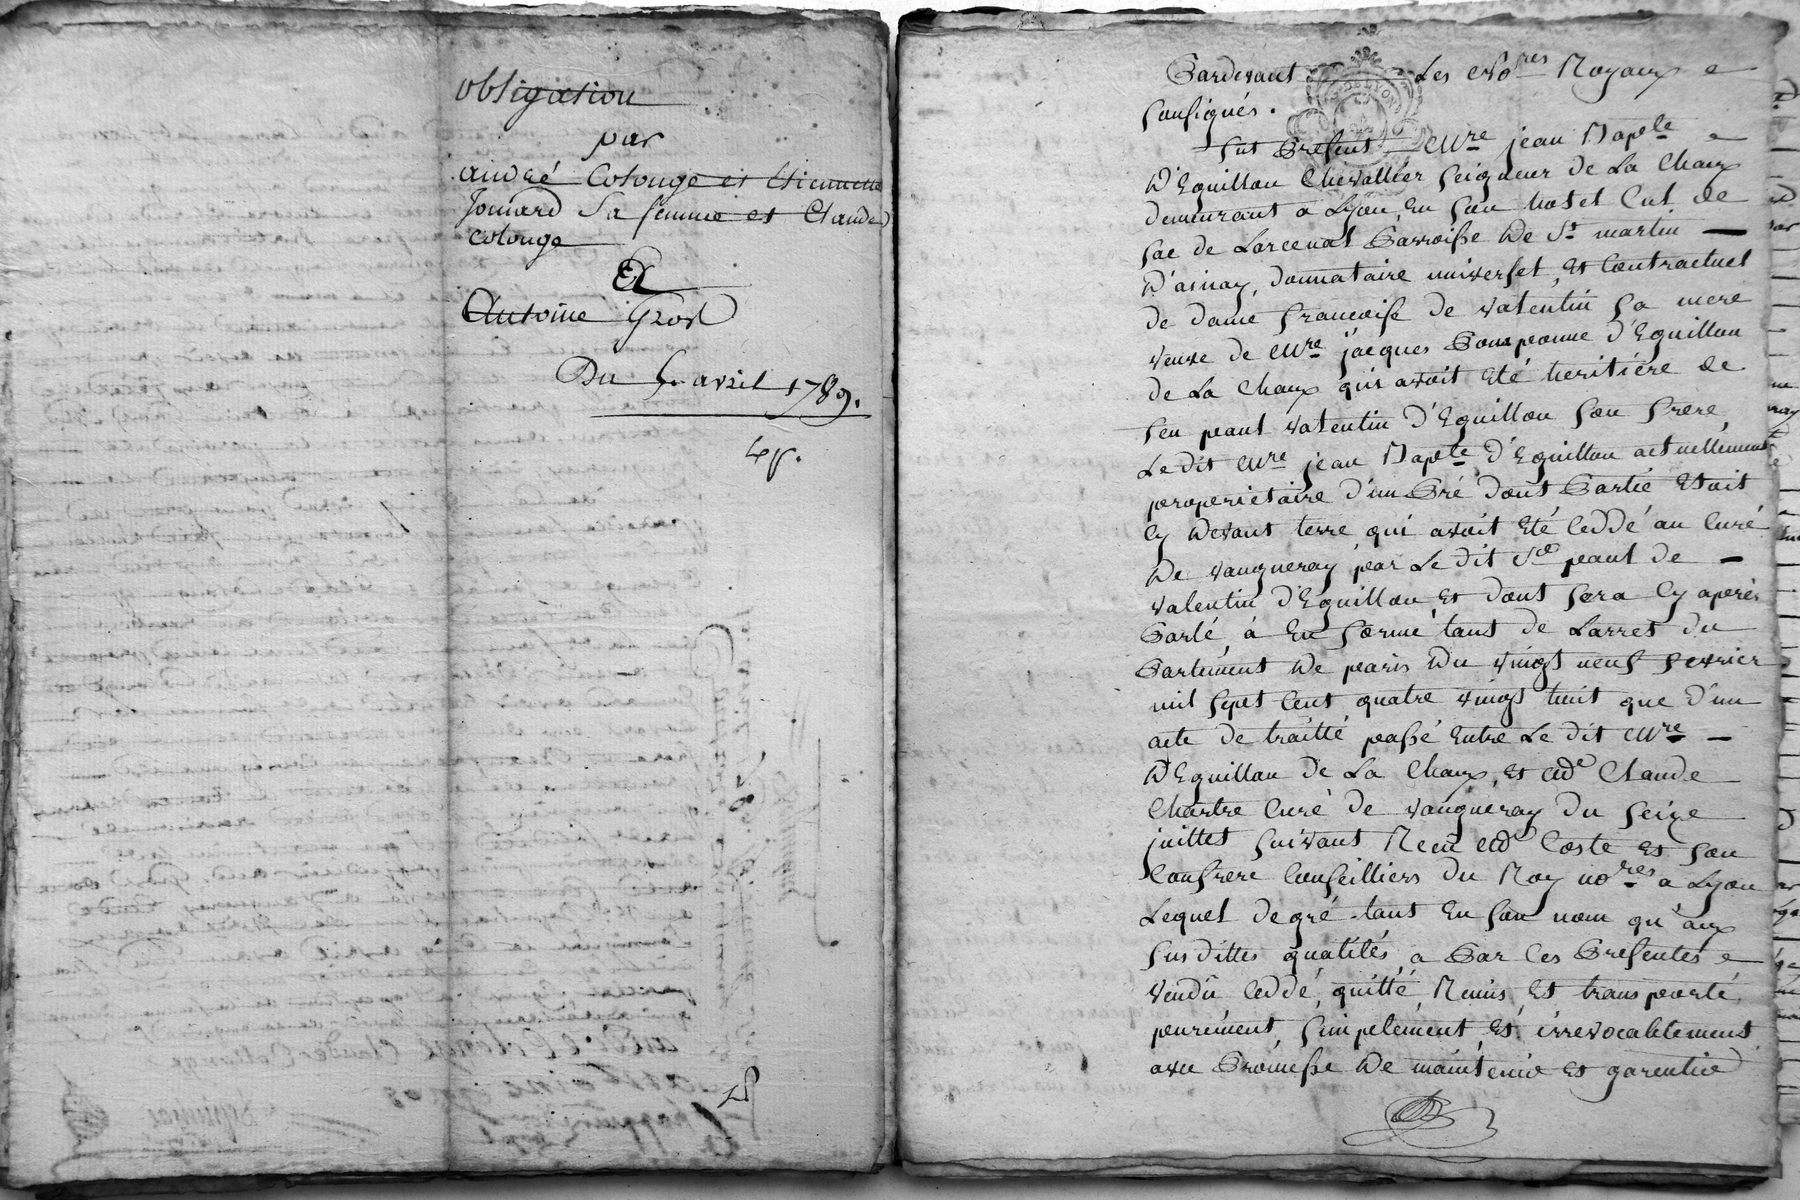 obligation
par
andré Colonge et Etiennette
Jomard Sa femme et Claude
colonge
Et
Antoine gros
Du 5. avril 1789.
Pardevant Les No^res Royaux
soussignés.
fut Present M^re jean Bap^te
D'Eguillon Chevallier seigneur de La Chaux
demeurant a Lyon en son hotel Cul de
sac de Larcenal Parroisse De S^t martin
D'ainay, donnataire universel, et Contractuel
de dame francoise de valentin sa mere
veuve de M^re jacques Pomponne d'Eguillon
de La Chaux qui avoit eté heritiére de
feu paul valentin d'Eguillon son frere
Le dit M^re jean Bap^te d'Eguillon actuellement
proprietaire d'un Pré dont Partie Etoit
Cy Devant terre qui avoit Eté Ceddé au Curé
De vaugneray par Le dit S^r paul de
valentin d'Eguillon, et dont sera Cy aprés
Parlé, á En forme tant de Larret du
Parlement De paris Du vingt neuf fevrier
mil sept Cent quatre vingt huit que d'un
acte de traitté passé Entre Le dit M^re
D'Eguillon de La Chaux, et M^e Claude
Chartre Curé de vaugneray du seize
juillet suivant Recu M^e Coste et son
Confrere Conseilliers du Roy no^res a Lyon
Lequel de gré tant En son nom qu'aux
susdittes qualités, a Par Ces Presentes
vendû Ceddé, quitté, Remis, et transporté
purement, simplement, et irrevocablement
avec Promesse De maintenir et garentir